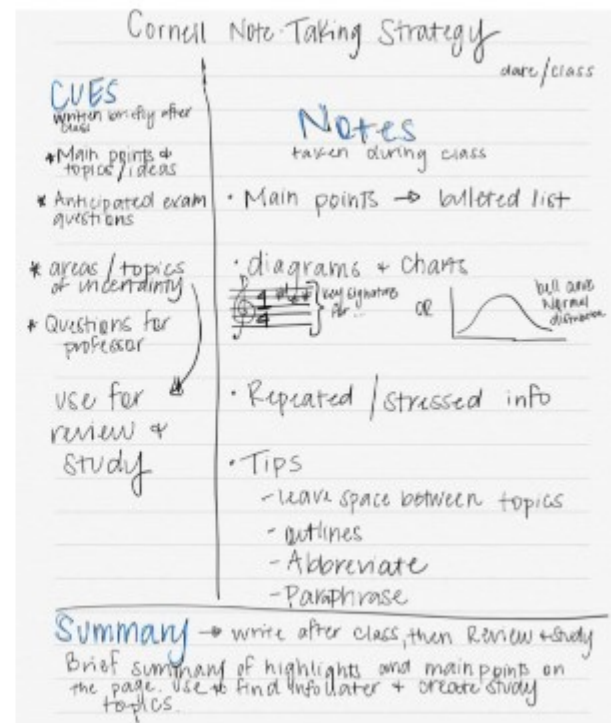 Cornell Note-Taking Strategy
date/class
CUES
written briefly after
class
*Main points &
topics/ideas
* Anticipated exam
questions
* areas/topics
of uncertainty
* Questions for
professor
use for
review &
study
Notes
taken during class
• Main points → bulleted list
• diagrams & Charts
4
4
key signature
for...
OR
bell curve
Normal
distribution
• Repeated/stressed info
• Tips
- leave space between topics
- outlines
- Abbreviate
- Paraphrase
Summary → write after class, then Review & Study
Brief summary of highlights and main points on
the page. Use to find info later & create study
topics.